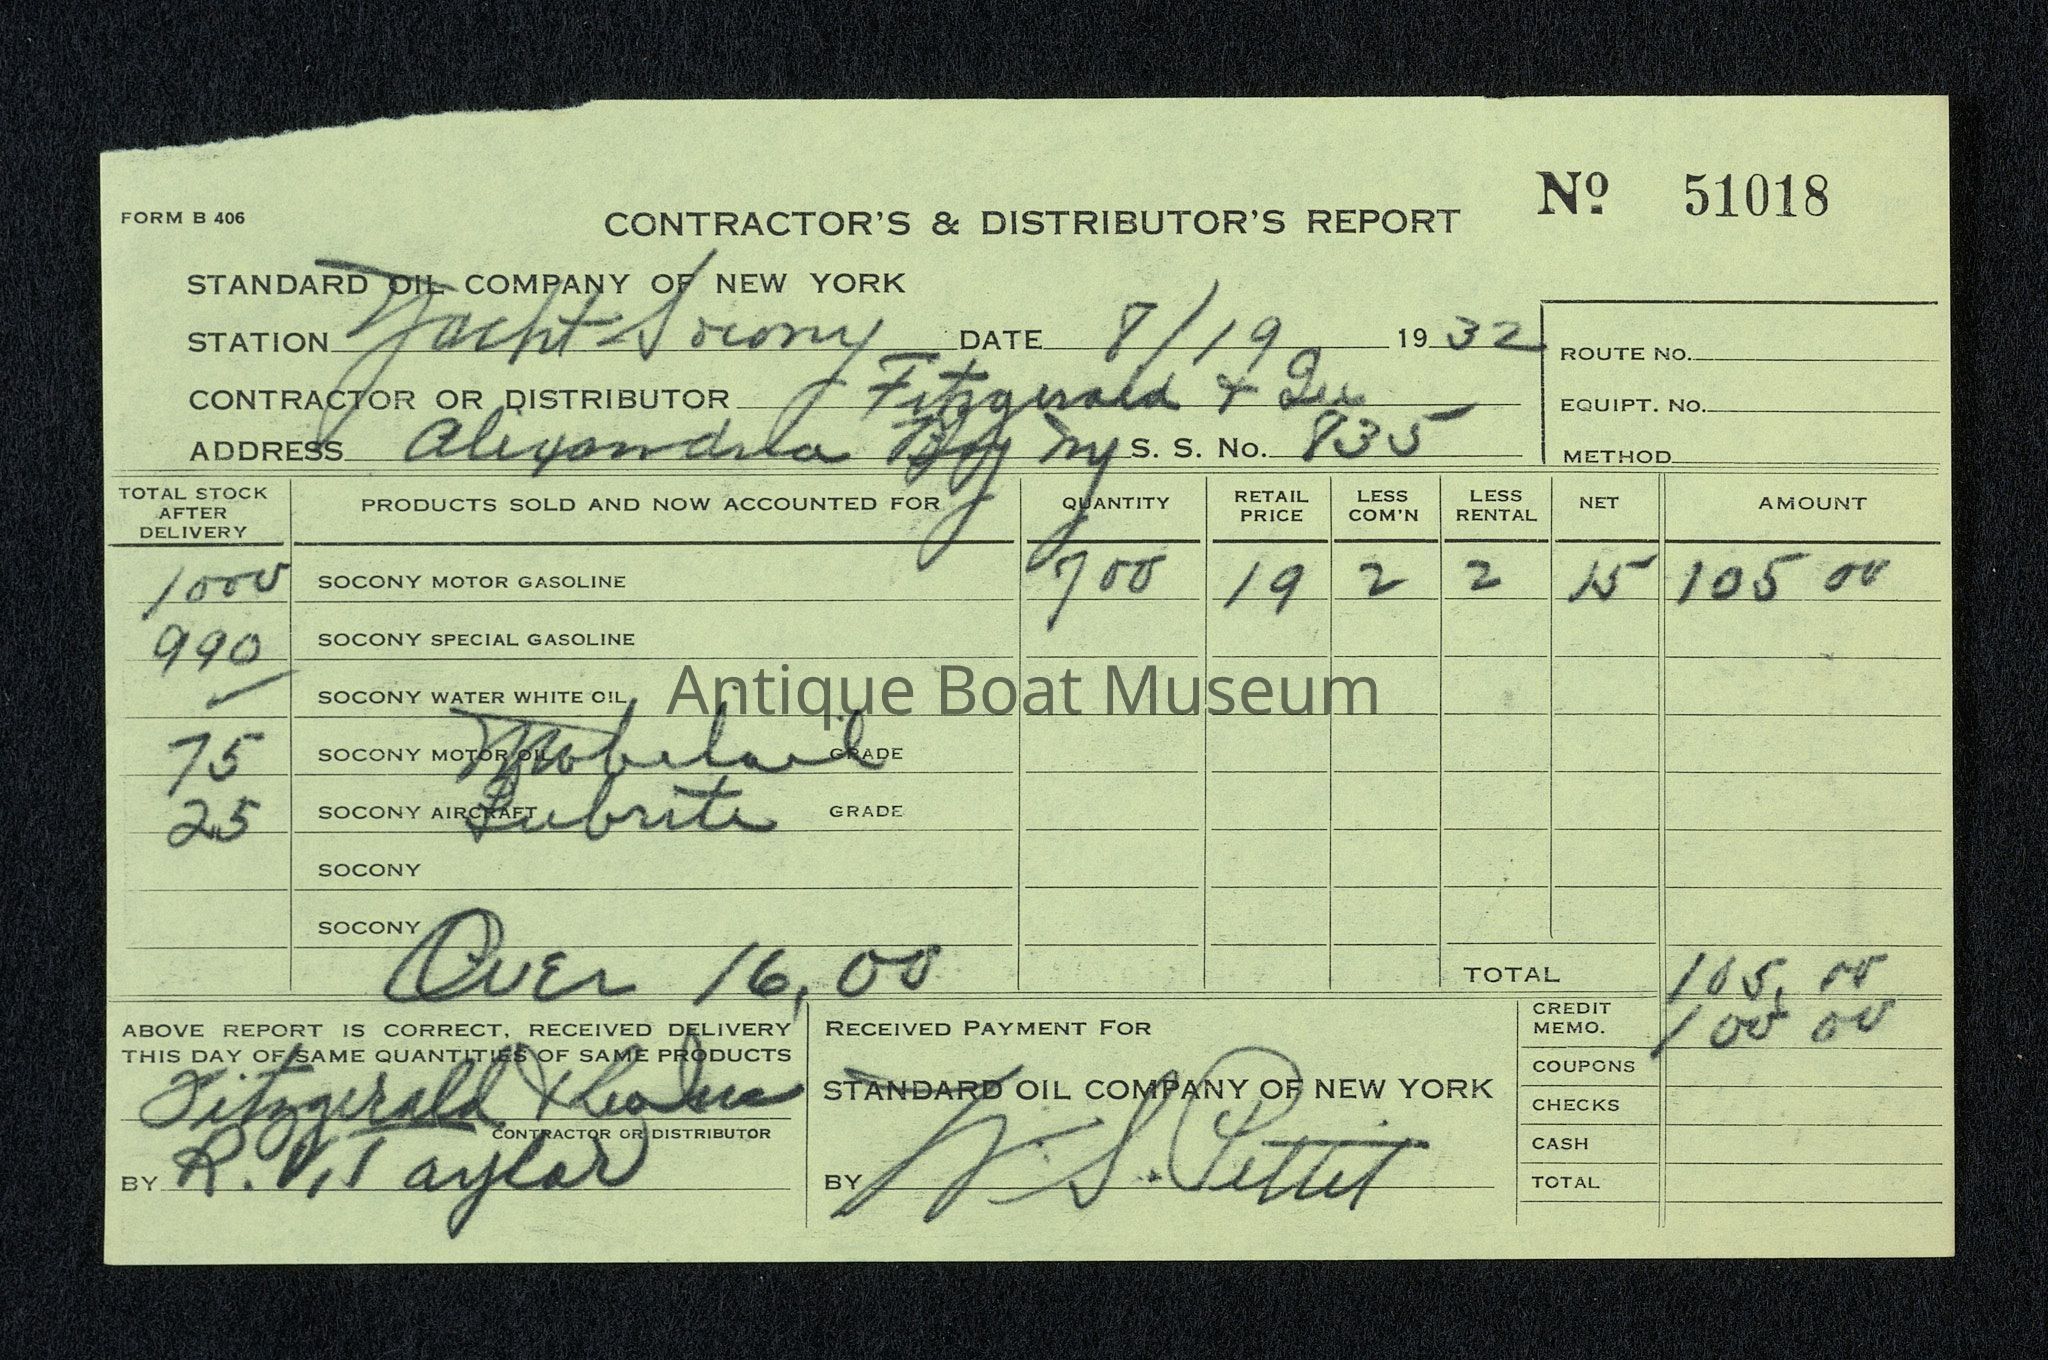 FORM B 406
CONTRACTOR'S & DISTRIBUTOR'S REPORT
Nº 51018
STANDARD OIL COMPANY OF NEW YORK
STATION Yacht Socony DATE 8/19 1932
ROUTE NO.
CONTRACTOR OR DISTRIBUTOR Fitzgerald & Lee
EQUIPT. NO.
ADDRESS Alexandria Bay Ny S. S. No. 835
METHOD
TOTAL STOCK AFTER DELIVERY PRODUCTS SOLD AND NOW ACCOUNTED FOR QUANTITY RETAIL PRICE LESS COM'N LESS RENTAL NET AMOUNT
1000 SOCONY MOTOR GASOLINE 700 19 2 2 15 105 00
990 SOCONY SPECIAL GASOLINE
SOCONY WATER WHITE OIL
Antique Boat Museum
75 SOCONY MOTOR OIL Mobeloil GRADE
25 SOCONY AIRCRAFT Lubrite GRADE
SOCONY
SOCONY
Over 16,00
TOTAL 105, 00
ABOVE REPORT IS CORRECT, RECEIVED DELIVERY
THIS DAY OF SAME QUANTITIES OF SAME PRODUCTS
Fitzgerald &
CONTRACTOR OR DISTRIBUTOR
BY R. V. Taylor
RECEIVED PAYMENT FOR
STANDARD OIL COMPANY OF NEW YORK
BY W. S. Pettit
CREDIT MEMO. 100 00
COUPONS
CHECKS
CASH
TOTAL